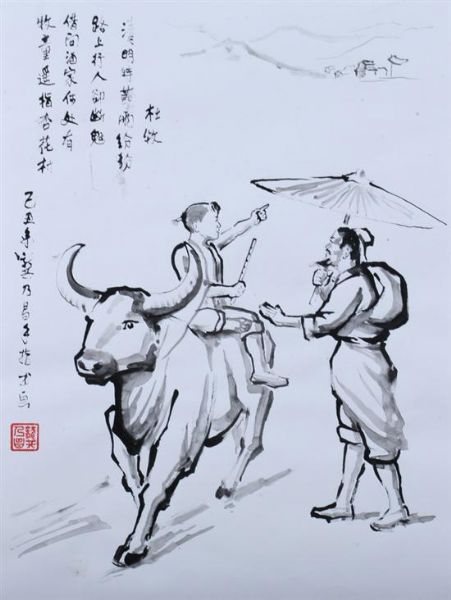 杜牧
清明时节雨纷纷
路上行人欲断魂
借问酒家何处有
牧童遥指杏花村
己丑年 乃昌 指